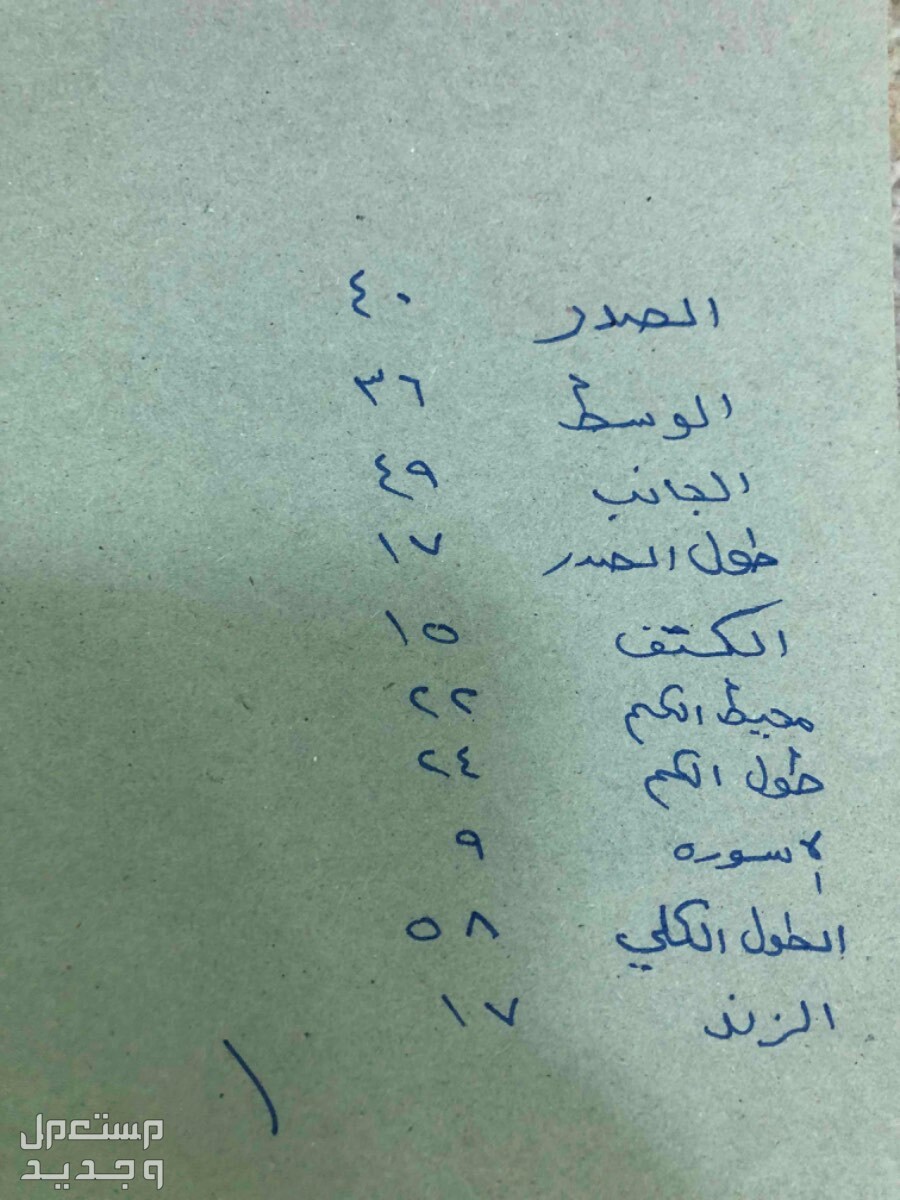 الصدر ٤٠
الوسط ٣٦
الجانب ٤٩
طول الصدر ١٧
الكتف ١٥
محيط الكم ٢٢
طول الكم ٢٤
الاسوره ٩
الطول الكلي ٥٨
الزند ١٧
١
مستعمل
وجديد